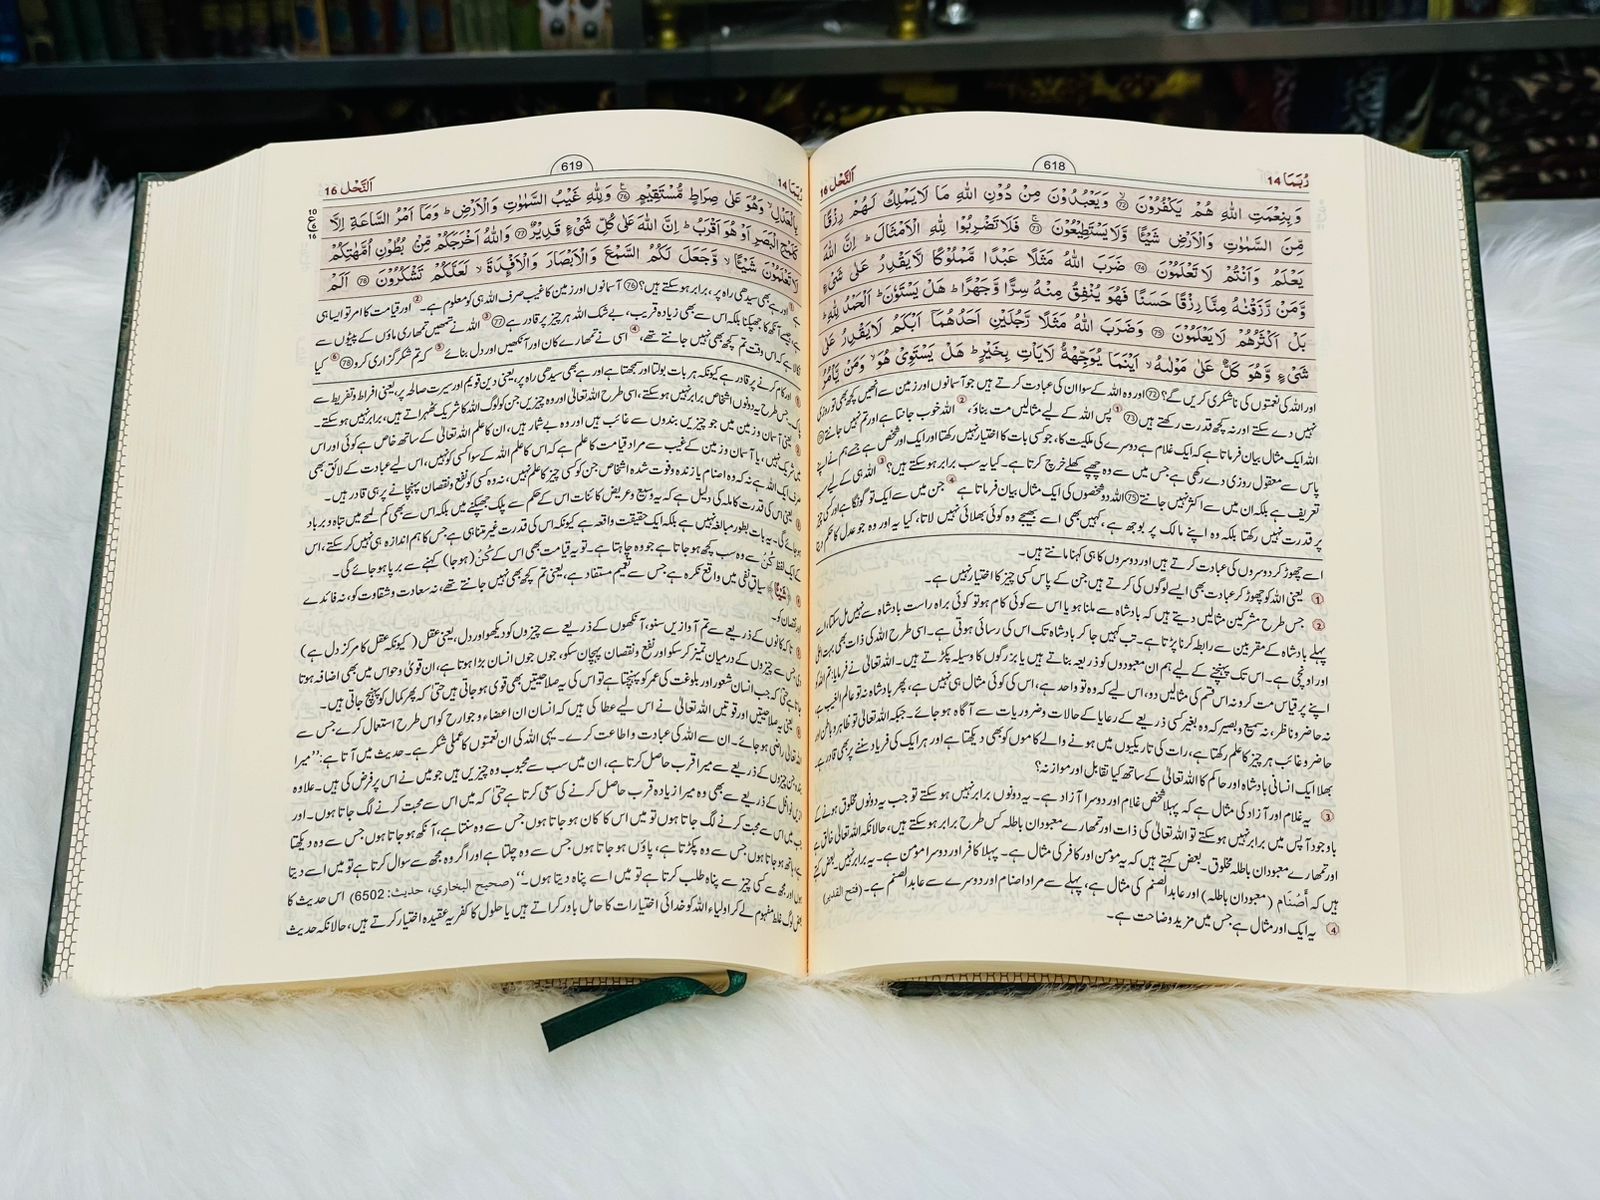 رُبَمَا 14
618
اَلنَّحْل 16
وَ بِنِعْمَتِ اللّٰهِ هُمْ يَكْفُرُوْنَ ۙ 72 وَ يَعْبُدُوْنَ مِنْ دُوْنِ اللّٰهِ مَا لَا يَمْلِكُ لَهُمْ رِزْقًا
مِّنَ السَّمٰوٰتِ وَالْاَرْضِ شَيْـًٔا وَّلَا يَسْتَطِيْعُوْنَ ۚ 73 فَلَا تَضْرِبُوْا لِلّٰهِ الْاَمْثَالَ ؕ اِنَّ اللّٰهَ
يَعْلَمُ وَاَنْتُمْ لَا تَعْلَمُوْنَ 74 ضَرَبَ اللّٰهُ مَثَلًا عَبْدًا مَّمْلُوْكًا لَّا يَقْدِرُ عَلٰى شَيْءٍ
وَّمَنْ رَّزَقْنٰهُ مِنَّا رِزْقًا حَسَنًا فَهُوَ يُنْفِقُ مِنْهُ سِرًّا وَّجَهْرًا ؕ هَلْ يَسْتَوٗنَ ؕ اَلْحَمْدُ لِلّٰهِ ؕ
بَلْ اَكْثَرُهُمْ لَا يَعْلَمُوْنَ 75 وَضَرَبَ اللّٰهُ مَثَلًا رَّجُلَيْنِ اَحَدُهُمَاۤ اَبْكَمُ لَا يَقْدِرُ عَلٰى
شَيْءٍ وَّهُوَ كَلٌّ عَلٰى مَوْلٰىهُ ۙ اَيْنَمَا يُوَجِّهْهُّ لَا يَاْتِ بِخَيْرٍ ؕ هَلْ يَسْتَوِيْ هُوَ ۙ وَمَنْ يَّاْمُرُ
اور اللہ کی نعمتوں کی ناشکری کریں گے؟ 72 اور وہ اللہ کے سوا ان کی عبادت کرتے ہیں جو آسمانوں اور زمین سے انھیں کچھ بھی تو روزی
نہیں دے سکتے اور نہ کچھ قدرت رکھتے ہیں 73 ① پس اللہ کے لیے مثالیں مت بناؤ، ② اللہ خوب جانتا ہے اور تم نہیں جانتے
اللہ ایک مثال بیان فرماتا ہے کہ ایک غلام ہے دوسرے کی ملکیت کا، جو کسی بات کا اختیار نہیں رکھتا اور ایک اور شخص ہے جسے ہم نے اپنے
پاس سے معقول روزی دے رکھی ہے، جس میں سے وہ چھپے کھلے خرچ کرتا ہے۔ کیا یہ سب برابر ہو سکتے ہیں؟ ③ اللہ ہی کے لیے سب
تعریف ہے بلکہ ان میں سے اکثر نہیں جانتے 75 اللہ دو شخصوں کی ایک مثال بیان فرماتا ہے ④ جن میں سے ایک تو گونگا ہے اور کسی چیز
پر قدرت نہیں رکھتا بلکہ وہ اپنے مالک پر بوجھ ہے، کہیں بھی اسے بھیجے وہ کوئی بھلائی نہیں لاتا، کیا یہ اور وہ جو عدل کا حکم دیتا
اسے چھوڑ کر دوسروں کی عبادت کرتے ہیں اور دوسروں کا ہی کہنا مانتے ہیں۔
① یعنی اللہ کو چھوڑ کر عبادت بھی ایسے لوگوں کی کرتے ہیں جن کے پاس کسی چیز کا اختیار نہیں ہے۔
② جس طرح مشرکین مثالیں دیتے ہیں کہ بادشاہ سے ملنا ہو یا اس سے کوئی کام ہو تو کوئی براہ راست بادشاہ سے نہیں مل سکتا، اسے
پہلے بادشاہ کے مقربین سے رابطہ کرنا پڑتا ہے۔ تب کہیں جا کر بادشاہ تک اس کی رسائی ہوتی ہے۔ اسی طرح اللہ کی ذات بھی بہت اعلیٰ
اور اونچی ہے۔ اس تک پہنچنے کے لیے ہم ان معبودوں کو ذریعہ بناتے ہیں یا بزرگوں کا وسیلہ پکڑتے ہیں۔ اللہ تعالیٰ نے فرمایا: تم اللہ کو
اپنے پر قیاس مت کرو نہ اس قسم کی مثالیں دو، اس لیے کہ وہ تو واحد ہے، اس کی کوئی مثال ہی نہیں ہے، پھر بادشاہ نہ تو عالم الغیب ہے،
نہ حاضر و ناظر، نہ سمیع و بصیر کہ وہ بغیر کسی ذریعے کے رعایا کے حالات و ضروریات سے آگاہ ہو جائے۔ جبکہ اللہ تعالیٰ تو ظاہر و باطن اور
حاضر و غائب ہر چیز کا علم رکھتا ہے، رات کی تاریکیوں میں ہونے والے کاموں کو بھی دیکھتا ہے اور ہر ایک کی فریاد سننے پر بھی قادر ہے۔
بھلا ایک انسانی بادشاہ اور حاکم کا اللہ تعالیٰ کے ساتھ کیا تقابل اور موازنہ؟
③ یہ غلام اور آزاد کی مثال ہے کہ پہلا شخص غلام اور دوسرا آزاد ہے۔ یہ دونوں برابر نہیں ہو سکتے تو جب یہ دونوں مخلوق ہونے کے
باوجود آپس میں برابر نہیں ہو سکتے تو اللہ تعالیٰ کی ذات اور تمھارے معبودان باطلہ کس طرح برابر ہو سکتے ہیں، حالانکہ اللہ تعالیٰ خالق ہے
اور تمھارے معبودان باطلہ مخلوق۔ بعض کہتے ہیں کہ یہ مومن اور کافر کی مثال ہے۔ پہلا کافر اور دوسرا مومن ہے۔ یہ برابر نہیں۔ بعض کہتے
ہیں کہ أَصْنَام (معبودان باطلہ) اور عابد الصنم کی مثال ہے، پہلے سے مراد اصنام اور دوسرے سے عابد الصنم ہے۔ (فتح القدیر)
④ یہ ایک اور مثال ہے جس میں مزید وضاحت ہے۔
رُبَمَا 14
619
اَلنَّحْل 16
بِالْعَدْلِ ۙ وَهُوَ عَلٰى صِرَاطٍ مُّسْتَقِيْمٍ 76 وَلِلّٰهِ غَيْبُ السَّمٰوٰتِ وَالْاَرْضِ ؕ وَمَاۤ اَمْرُ السَّاعَةِ اِلَّا
كَلَمْحِ الْبَصَرِ اَوْ هُوَ اَقْرَبُ ؕ اِنَّ اللّٰهَ عَلٰى كُلِّ شَيْءٍ قَدِيْرٌ 77 وَاللّٰهُ اَخْرَجَكُمْ مِّنْۢ بُطُوْنِ اُمَّهٰتِكُمْ
لَا تَعْلَمُوْنَ شَيْـًٔا ۙ وَّجَعَلَ لَكُمُ السَّمْعَ وَالْاَبْصَارَ وَالْاَفْـِٕدَةَ ۙ لَعَلَّكُمْ تَشْكُرُوْنَ 78 اَلَمْ
10
ع
6
16
ہے اور ہے بھی سیدھی راہ پر، برابر ہو سکتے ہیں؟ 76 آسمانوں اور زمین کا غیب صرف اللہ ہی کو معلوم ہے۔ ② اور قیامت کا امر تو ایسا ہی
ہے جیسے آنکھ کا جھپکنا بلکہ اس سے بھی زیادہ قریب، بے شک اللہ ہر چیز پر قادر ہے 77 ③ اللہ نے تمھیں تمھاری ماؤں کے پیٹوں سے
نکالا ہے کہ اس وقت تم کچھ بھی نہیں جانتے تھے، ④ اسی نے تمھارے کان اور آنکھیں اور دل بنائے ⑤ کہ تم شکر گزاری کرو 78 ⑥ کیا
اور کام کرنے پر قادر ہے کیونکہ ہر بات بولتا اور سمجھتا ہے اور ہے بھی سیدھی راہ پر، یعنی دین قویم اور سیرت صالحہ پر، یعنی افراط و تفریط سے
پاک۔ جس طرح یہ دونوں اشخاص برابر نہیں ہو سکتے، اسی طرح اللہ تعالیٰ اور وہ چیزیں جن کو لوگ اللہ کا شریک ٹھہراتے ہیں، برابر نہیں ہو سکتے۔
یعنی آسمان و زمین میں جو چیزیں بندوں سے غائب ہیں اور وہ بے شمار ہیں، ان کا علم اللہ تعالیٰ کے ساتھ خاص ہے کوئی اور اس
میں شریک نہیں، یا آسمان و زمین کے غیب سے مراد قیامت کا علم ہے کہ اس کا علم اللہ کے سوا کسی کو نہیں، اس لیے عبادت کے لائق بھی
صرف ایک اللہ ہے نہ کہ وہ اصنام یا زندہ و فوت شدہ اشخاص جن کو کسی چیز کا علم نہیں، نہ وہ کسی کو نفع و نقصان پہنچانے پر ہی قادر ہیں۔
یعنی اس کی قدرت کاملہ کی دلیل ہے کہ یہ وسیع و عریض کائنات اس کے حکم سے پلک جھپکنے میں بلکہ اس سے بھی کم لمحے میں تباہ و برباد
ہو جائے گی۔ یہ بات بطور مبالغہ نہیں ہے بلکہ ایک حقیقت واقعہ ہے کیونکہ اس کی قدرت غیر متناہی ہے جس کا ہم اندازہ ہی نہیں کر سکتے، اس
کے ایک لفظ كُنْ سے وہ سب کچھ ہو جاتا ہے جو وہ چاہتا ہے۔ تو یہ قیامت بھی اس کے كُنْ (ہو جا) کہنے سے برپا ہو جائے گی۔
سیاق نفی میں واقع نکرہ ہے جس سے تعمیم مستفاد ہے، یعنی تم کچھ بھی نہیں جانتے تھے، نہ سعادت و شقاوت کو، نہ فائدے
اور نقصان کو۔
تاکہ کانوں کے ذریعے سے تم آوازیں سنو، آنکھوں کے ذریعے سے چیزوں کو دیکھو اور دل، یعنی عقل (کیونکہ عقل کا مرکز دل ہے)
سے چیزوں کے درمیان تمیز کر سکو اور نفع و نقصان پہچان سکو، جوں جوں انسان بڑا ہوتا ہے، ان قویٰ و حواس میں بھی اضافہ ہوتا
جاتا ہے حتیٰ کہ جب انسان شعور اور بلوغت کی عمر کو پہنچتا ہے تو اس کی یہ صلاحیتیں بھی قوی ہو جاتی ہیں حتیٰ کہ پھر کمال کو پہنچ جاتی ہیں۔
یعنی یہ صلاحیتیں اور قوتیں اللہ تعالیٰ نے اس لیے عطا کی ہیں کہ انسان ان اعضاء و جوارح کو اس طرح استعمال کرے جس سے
اللہ تعالیٰ راضی ہو جائے۔ ان سے اللہ کی عبادت و اطاعت کرے۔ یہی اللہ کی ان نعمتوں کا عملی شکر ہے۔ حدیث میں آتا ہے: ’’میرا
بندہ جن چیزوں کے ذریعے سے میرا قرب حاصل کرتا ہے، ان میں سب سے محبوب وہ چیزیں ہیں جو میں نے اس پر فرض کی ہیں۔ علاوہ
ازیں نوافل کے ذریعے سے بھی وہ میرا زیادہ قرب حاصل کرنے کی سعی کرتا ہے حتیٰ کہ میں اس سے محبت کرنے لگ جاتا ہوں۔ اور
جب میں اس سے محبت کرنے لگ جاتا ہوں تو میں اس کا کان ہو جاتا ہوں جس سے وہ سنتا ہے، آنکھ ہو جاتا ہوں جس سے وہ دیکھتا
ہے، ہاتھ ہو جاتا ہوں جس سے وہ پکڑتا ہے، پاؤں ہو جاتا ہوں جس سے وہ چلتا ہے اور اگر وہ مجھ سے سوال کرتا ہے تو میں اسے دیتا
ہوں اور مجھ سے کسی چیز سے پناہ طلب کرتا ہے تو میں اسے پناہ دیتا ہوں۔‘‘ (صحیح البخاري، حدیث: 6502) اس حدیث کا
بعض لوگ غلط مفہوم لے کر اولیاء اللہ کو خدائی اختیارات کا حامل باور کراتے ہیں یا حلول کا کفریہ عقیدہ اختیار کرتے ہیں، حالانکہ حدیث